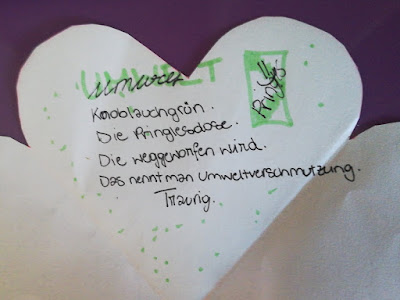 UMWELT
Umwelt
Pringles
Knoblauchgrün.
Die Pringlesdose.
Die weggeworfen wird.
Das nennt man Umweltverschmutzung.
Traurig.